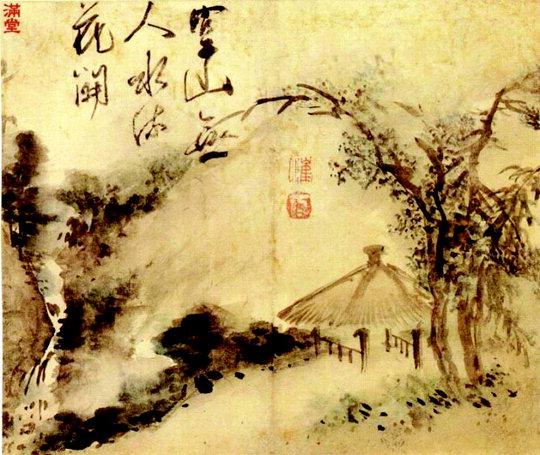 空山無
人水流
花開
滿堂